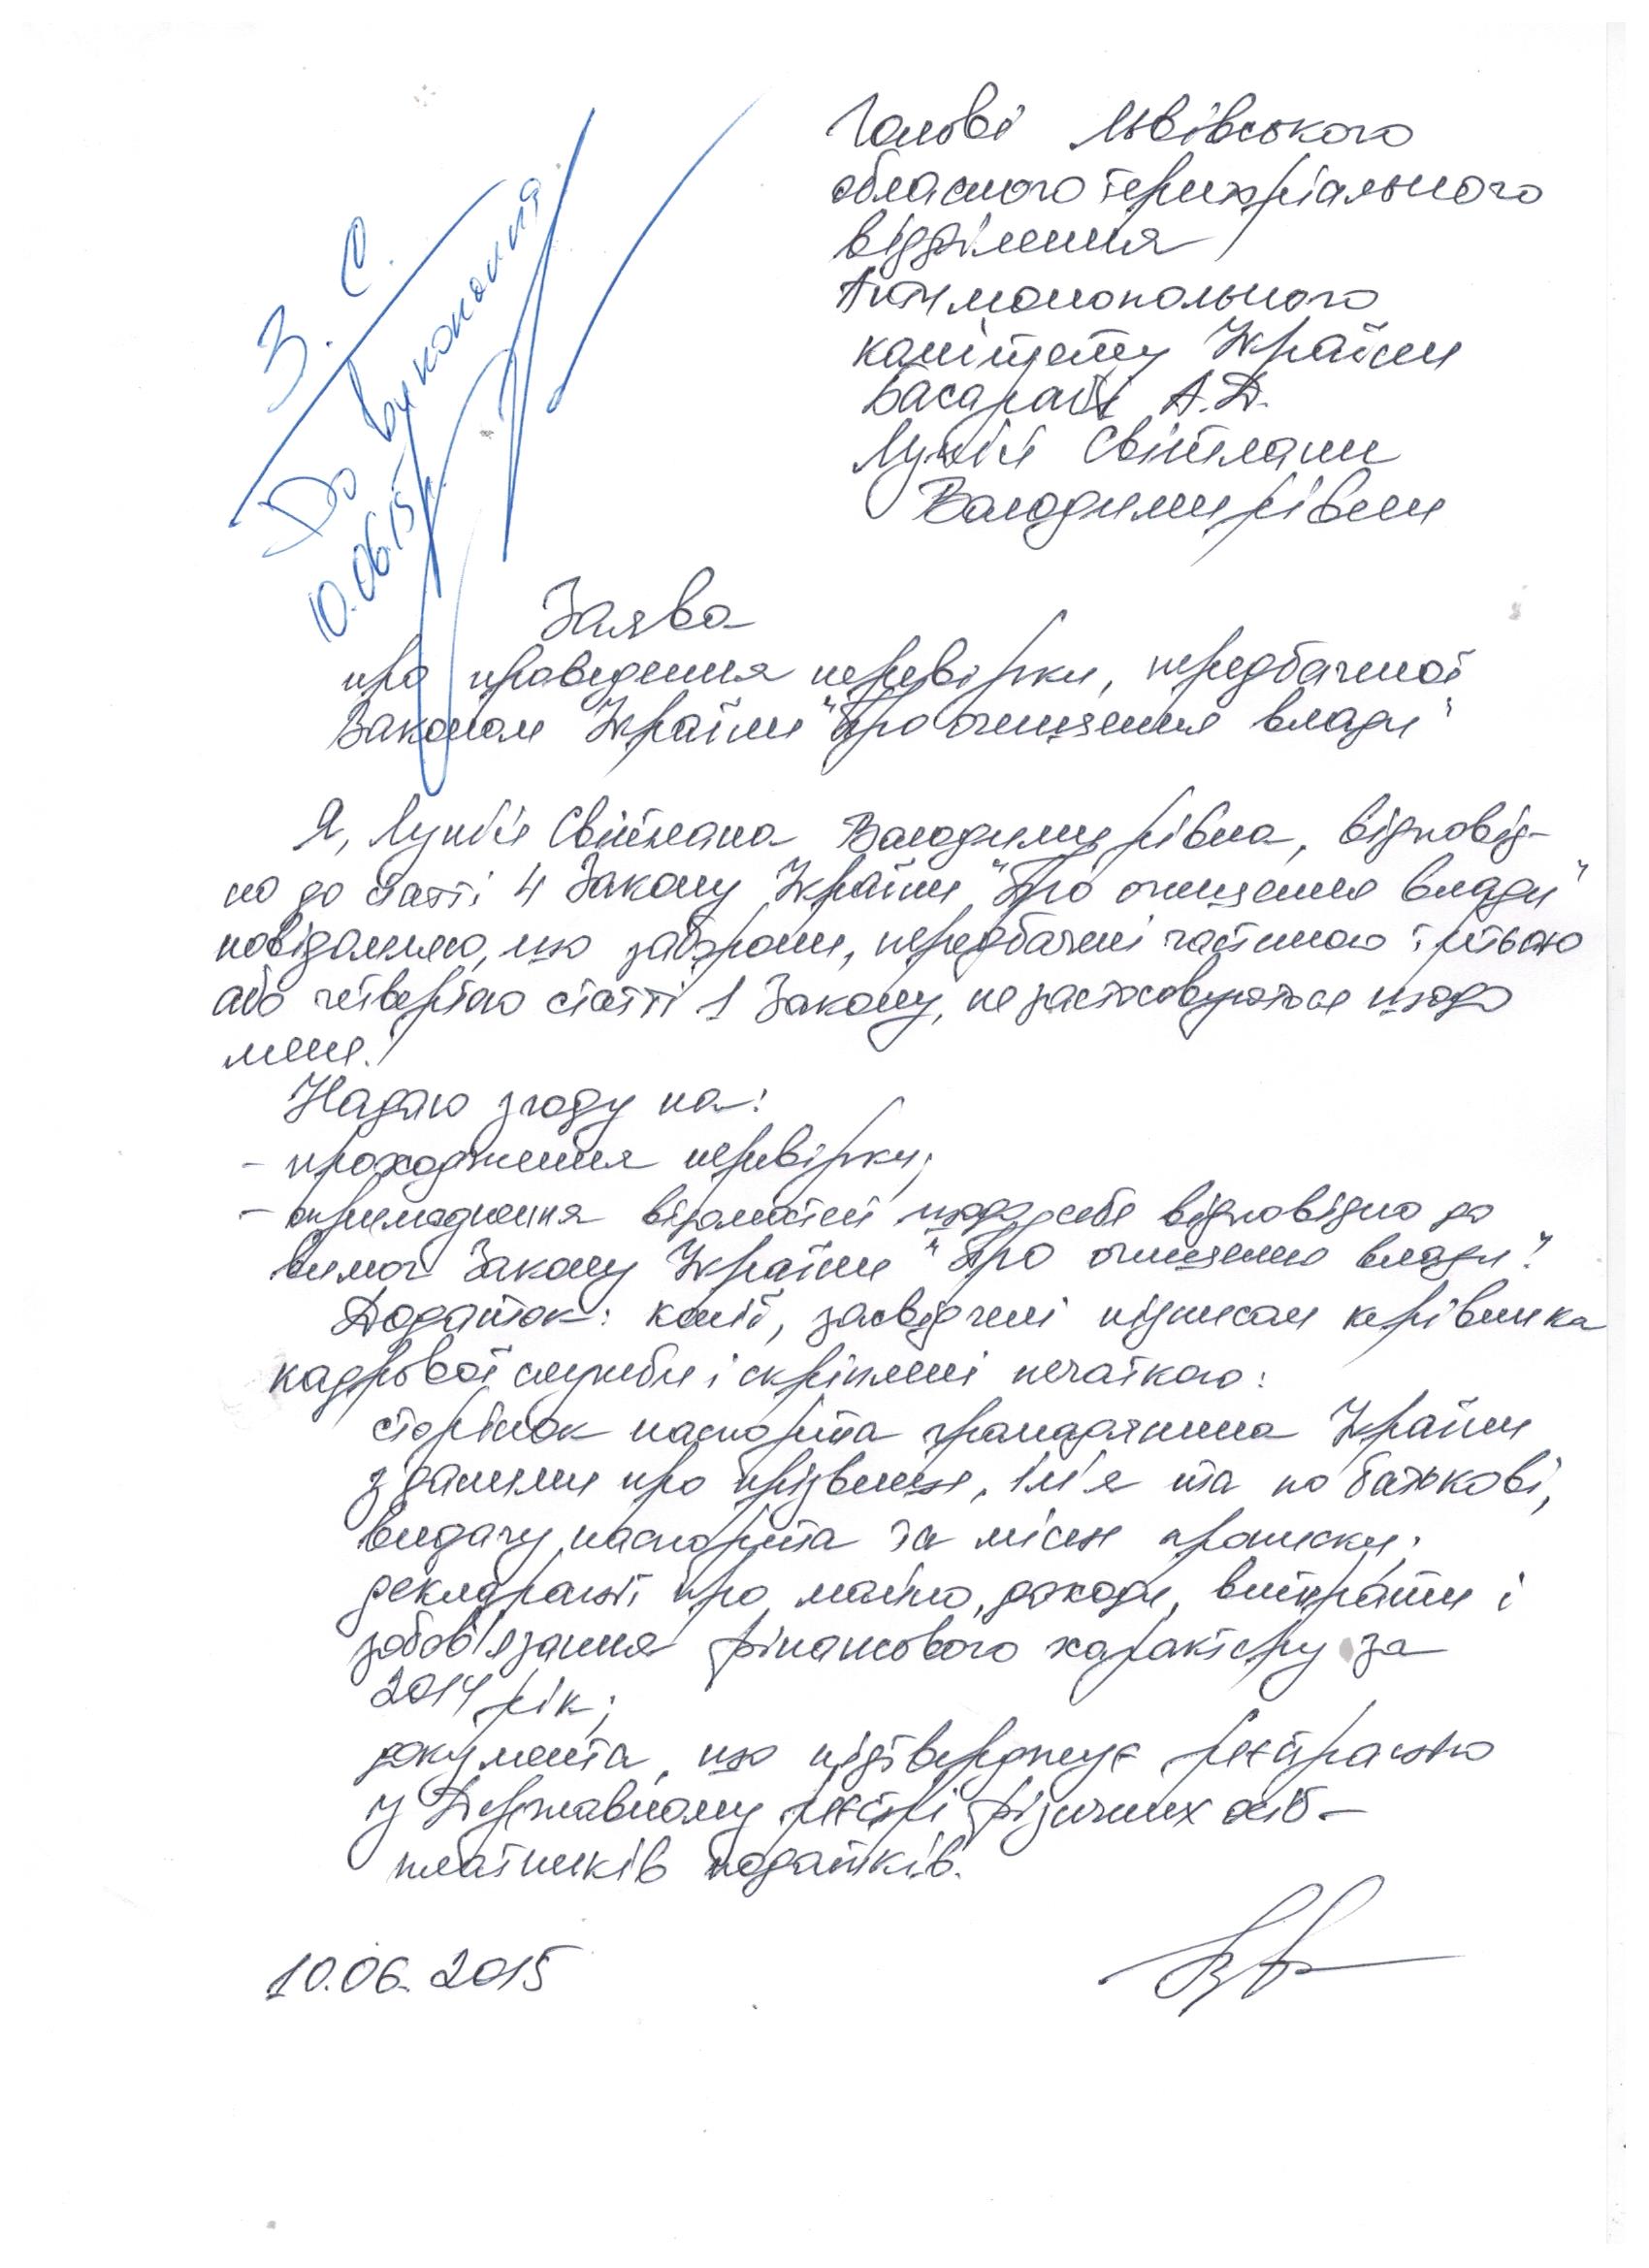 Голові Львівського
обласного територіального
відділення
Антимонопольного
комітету України
Басараб А.Д.
Лункіє Світлани
Володимирівни
З. С.
До виконання
10.06.15р.
Заява
про проведення перевірки, передбаченої
Законом України "Про очищення влади"
Я, Світлана Володимирівна, відповід-
но до статті 4 Закону України "Про очищення влади"
повідомляю, що заборони, передбачені частиною третьою
або четвертою статті 1 Закону, не застосовуються щодо
мене.
Надаю згоду на:
- проходження перевірки;
- оприлюднення відомостей щодо себе відповідно до
вимог Закону України "Про очищення влади".
Додаток: копії, засвідчені підписом керівника
кадрової служби і скріплені печаткою:
сторінок паспорта громадянина України
з даними про прізвище, ім'я та по батькові,
видачу паспорта та місце прописки;
декларації про майно, доходи, витрати і
зобов'язання фінансового характеру за
2014 рік;
документа, що підтверджує реєстрацію
у Державному реєстрі фізичних осіб -
платників податків.
10.06.2015